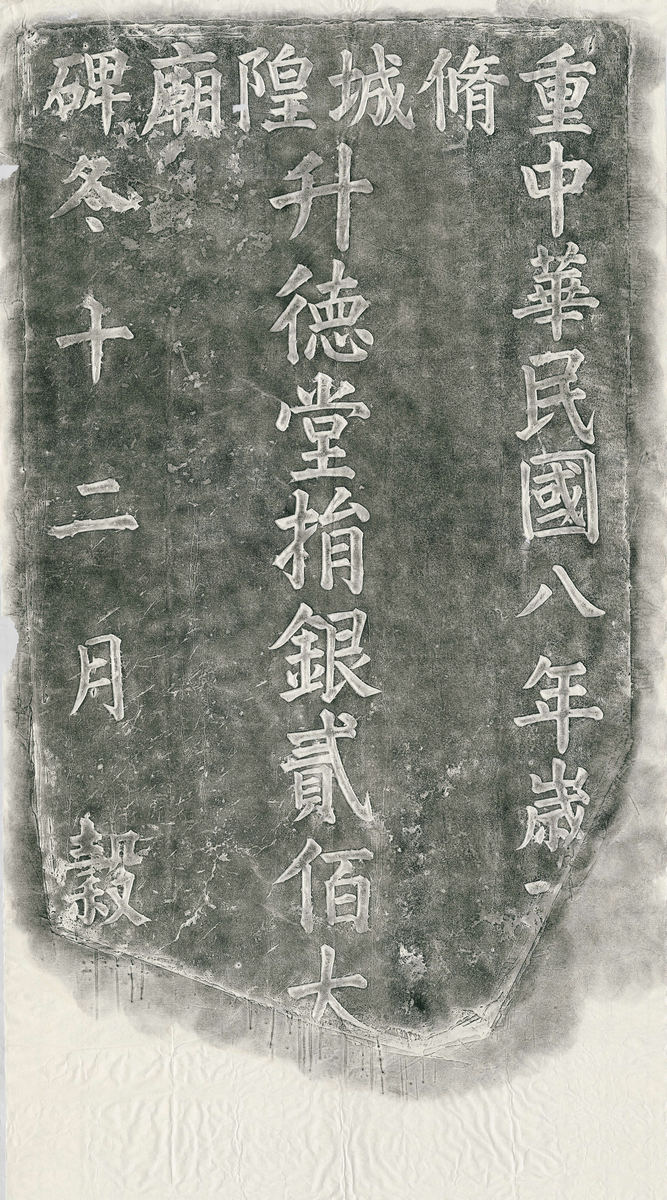 重脩城隍廟碑
中華民國八年歲
升德堂捐銀貳佰大
冬十二月穀